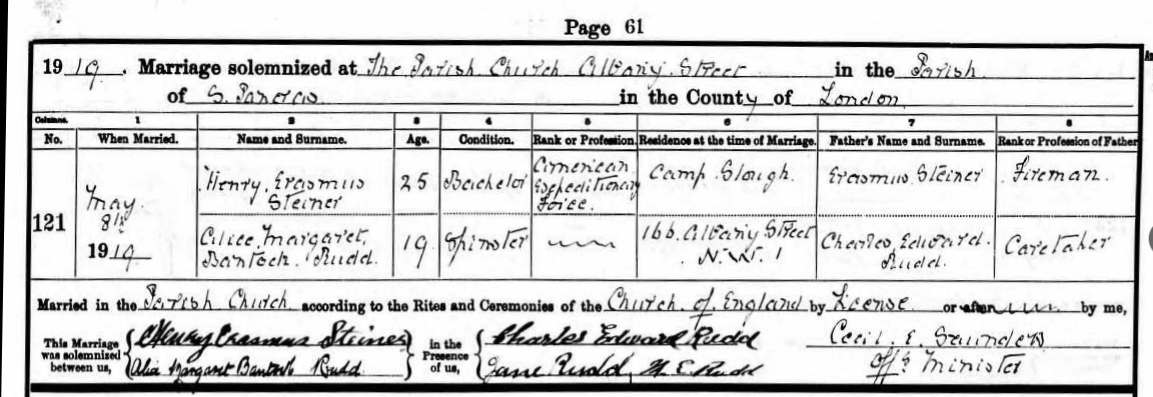 Page 61
1919. Marriage solemnized at The Parish Church Albany Street in the Parish
of S. Pancras in the County of London
Columns. 1 2 3 4 5 6 7 8
No. When Married. Name and Surname. Age. Condition. Rank or Profession. Residence at the time of Marriage. Father's Name and Surname. Rank or Profession of Father
121 May 8th 1919 Henry Erasmus Steiner 25 Bachelor American Expeditionary Force. Camp Slough. Erasmus Steiner Fireman.
Alice Margaret Bantock Rudd. 19 Spinster 166 Albany Street N.W.1 Charles Edward Rudd. Caretaker
Married in the Parish Church according to the Rites and Ceremonies of the Church of England by License or after by me,
This Marriage was solemnized between us, Henry Erasmus Steiner in the Presence of us, Charles Edward Rudd Cecil E. Saunders
Alice Margaret Bantock Rudd Jane Rudd, H. E. Rudd Offg Minister